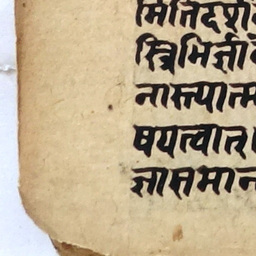 मितिदर्शि
स्त्रिभिर्ज्ञा
नास्त्यात्म
षयत्वात्
ज्ञासमान